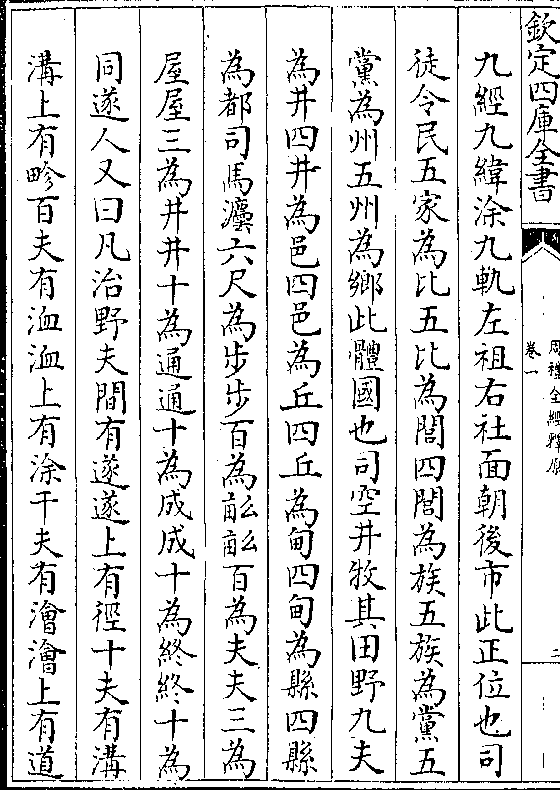 欽定四庫全書
周禮全經釋原
卷一
二
九經九緯涂九軌左祖右社面朝後市此正位也司
徒令民五家為比五比為閭四閭為族五族為黨五
黨為州五州為鄉此體國也司空井牧其田野九夫
為井四井為邑四邑為丘四丘為甸四甸為縣四縣
為都司馬灋六尺為步步百為畝畝百為夫夫三為
屋屋三為井井十為通通十為成成十為終終十為
同遂人又曰凡治野夫間有遂遂上有徑十夫有溝
溝上有畛百夫有洫洫上有涂千夫有澮澮上有道